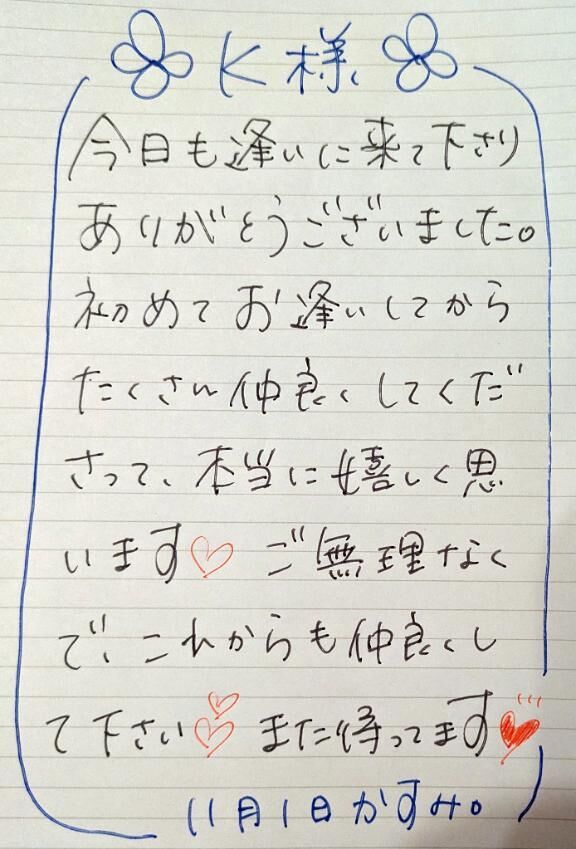 K様
今日も逢いに来て下さり
ありがとうございました。
初めてお逢いしてから
たくさん仲良くしてくだ
さって、本当に嬉しく思
います♡ ご無理なく
で、これからも仲良くし
て下さい♡♡ また待ってます♥
11月1日かすみ。